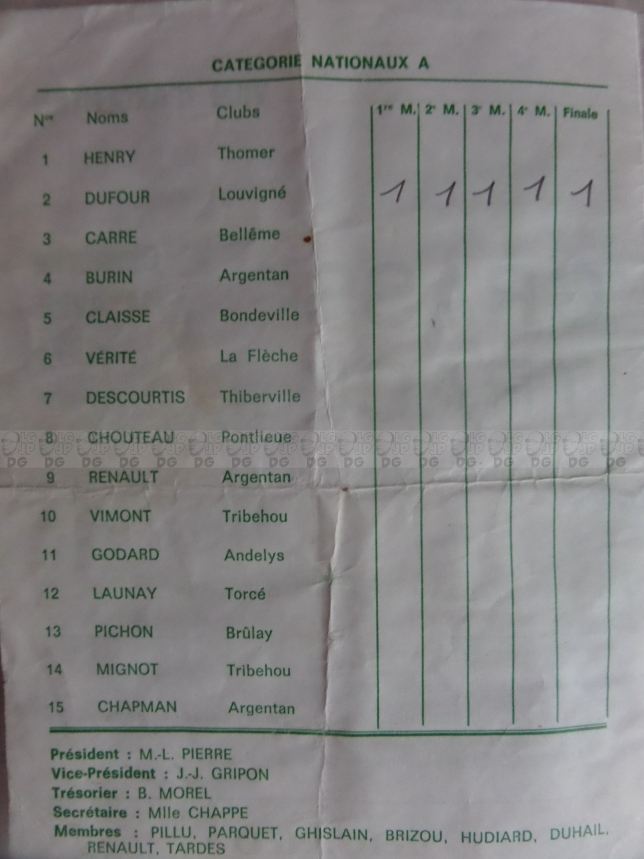 CATEGORIE NATIONAUX A
Nos Noms Clubs 1re M. 2e M. 3e M. 4e M. Finale
1 HENRY Thomer
2 DUFOUR Louvigné 1 1 1 1 1
3 CARRE Bellême
4 BURIN Argentan
5 CLAISSE Bondeville
6 VÉRITÉ La Flèche
7 DESCOURTIS Thiberville
8 CHOUTEAU Pontlieue
9 RENAULT Argentan
10 VIMONT Tribehou
11 GODARD Andelys
12 LAUNAY Torcé
13 PICHON Brûlay
14 MIGNOT Tribehou
15 CHAPMAN Argentan
Président : M.-L. PIERRE
Vice-Président : J.-J. GRIPON
Trésorier : B. MOREL
Secrétaire : Mlle CHAPPE
Membres : PILLU, PARQUET, GHISLAIN, BRIZOU, HUDIARD, DUHAIL,
RENAULT, TARDES